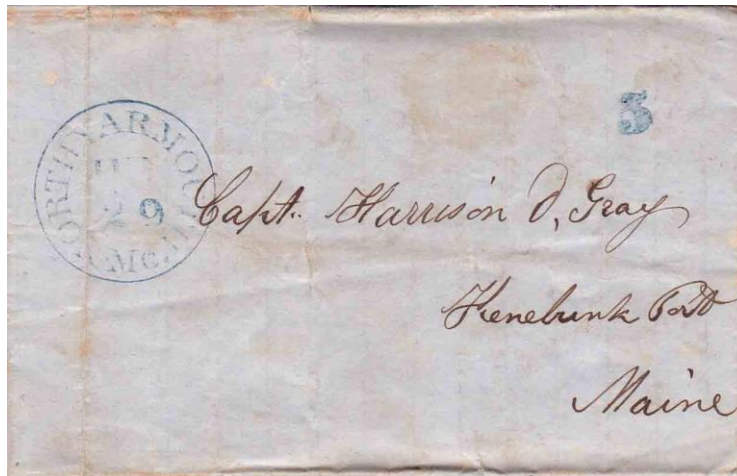 NORTH YARMOUTH
Me.
29
5
Capt. Harrison O, Gray
Kenebunk Port
Maine